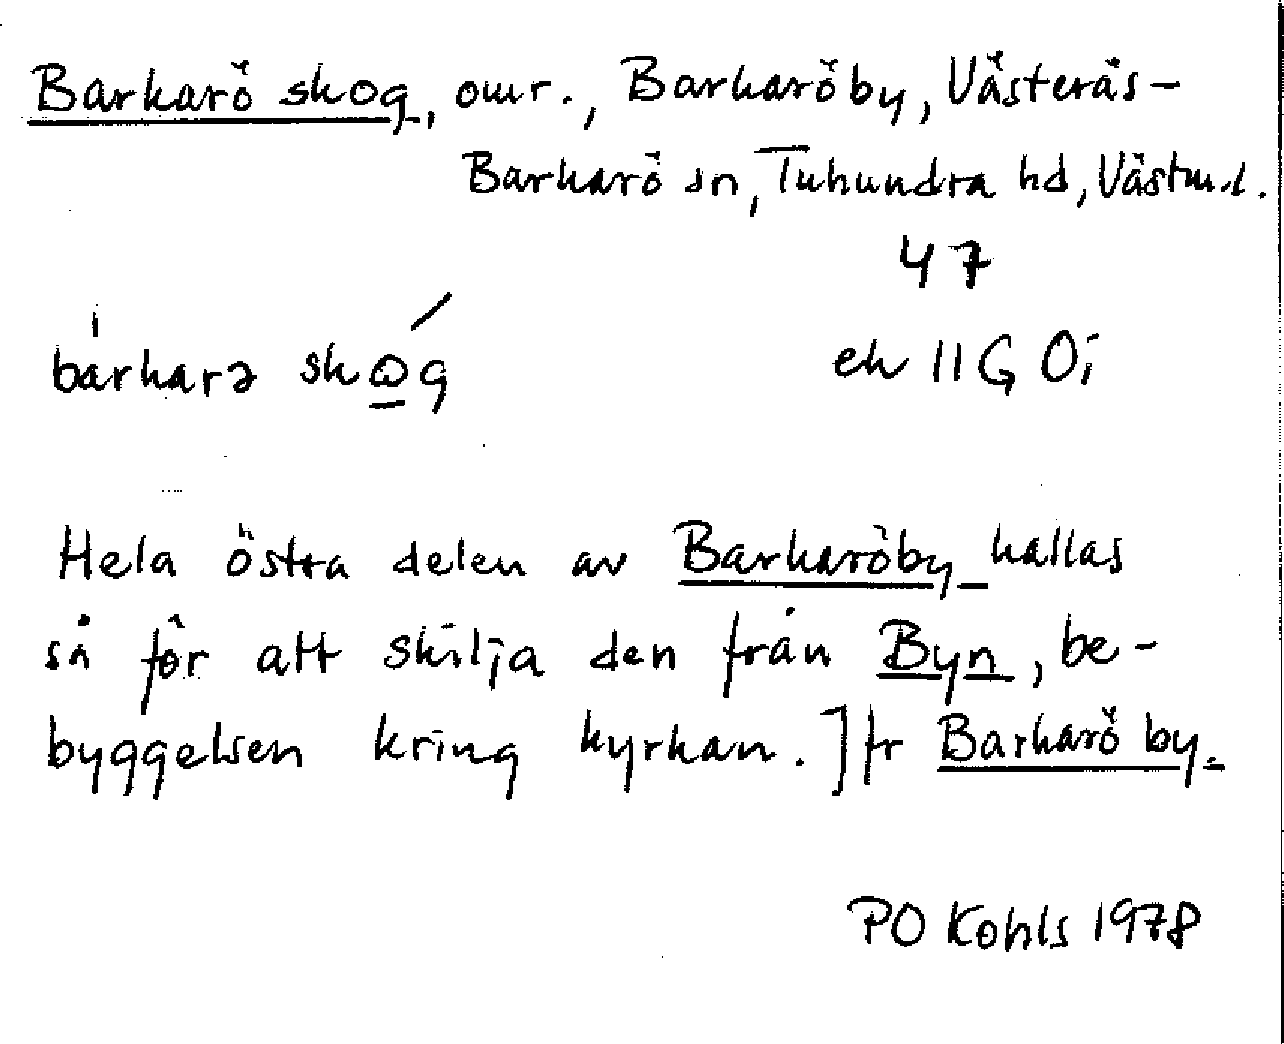 Barkarö skog, omr., Barkaröby, Västerås-
Barkarö sn, Tuhundra hd, Västm.l.
47
barkarə skog
ek 11G 0i
Hela östra delen av Barkaröby kallas
så för att skilja den från Byn, be-
byggelsen kring kyrkan. Jfr Barkarö by.
PO Kohls 1978